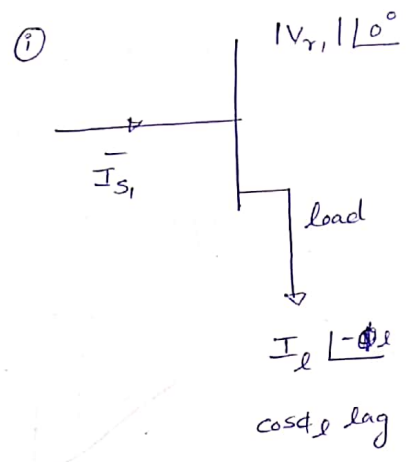 (i)
|Vr₁| ∠0°
I̅s₁
load
Iℓ ∠-ϕℓ
cosϕℓ lag